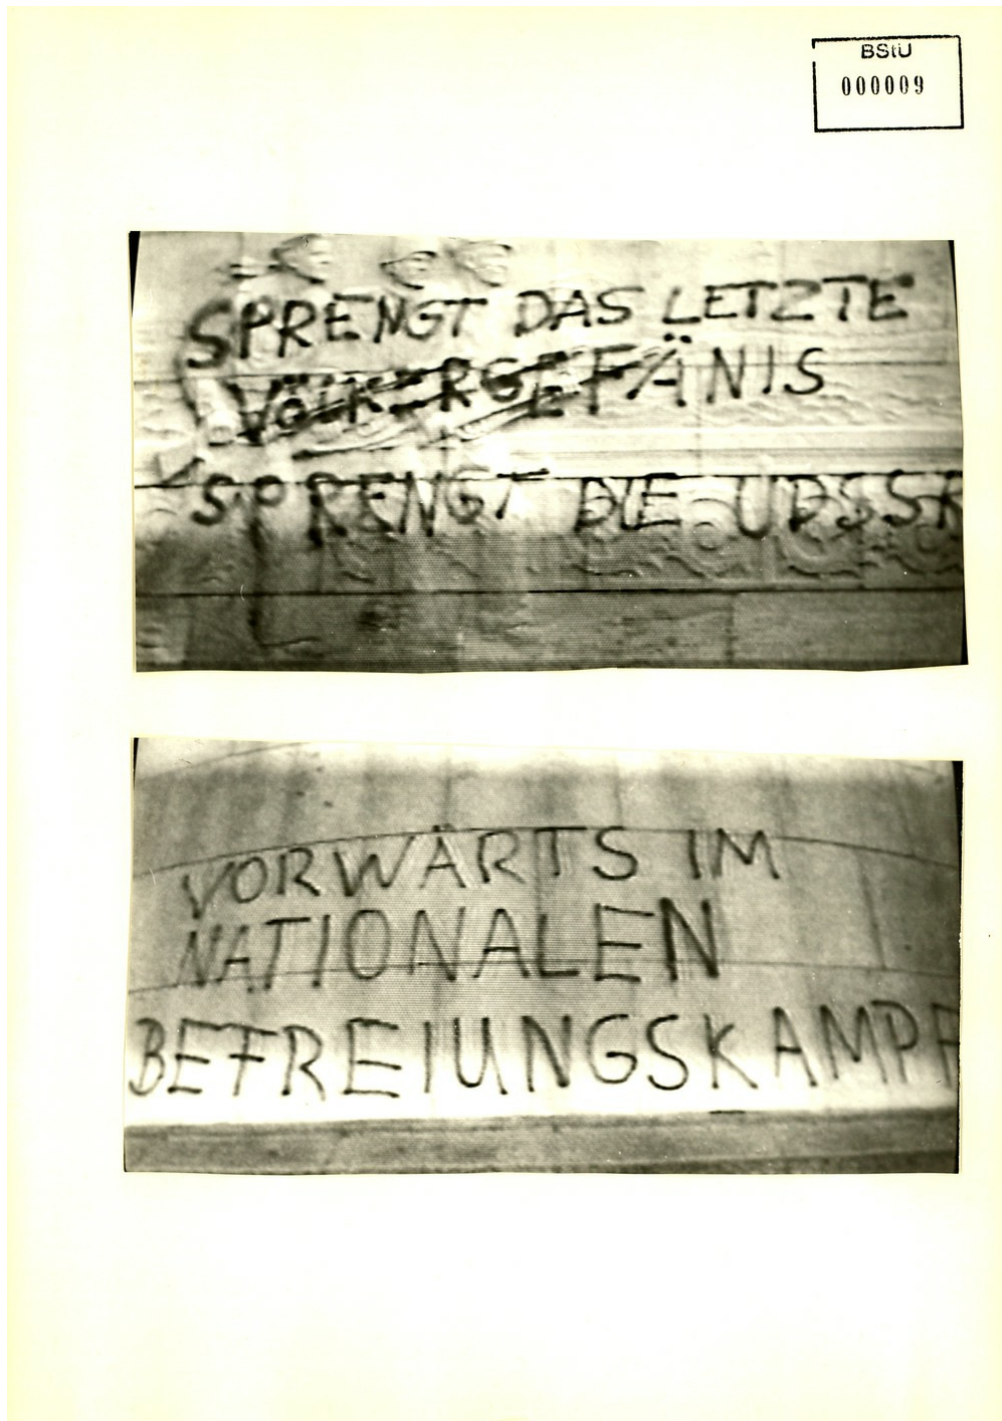 BStU
000009
SPRENGT DAS LETZTE
VÖLKERGEFÄNIS
SPRENGT DIE UDSSR
VORWÄRTS IM
NATIONALEN
BEFREIUNGSKAMPF